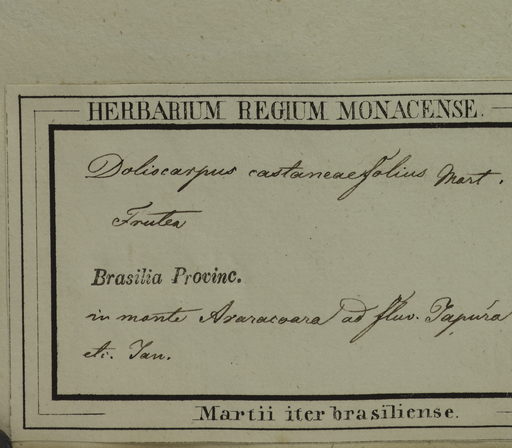 HERBARIUM REGIUM MONACENSE.
Doliocarpus castaneaefolius Mart.
Frutex
Brasilia Provinc.
in monte Araracoara ad fluv. Japúra
etc. Jan.
Martii iter brasiliense.